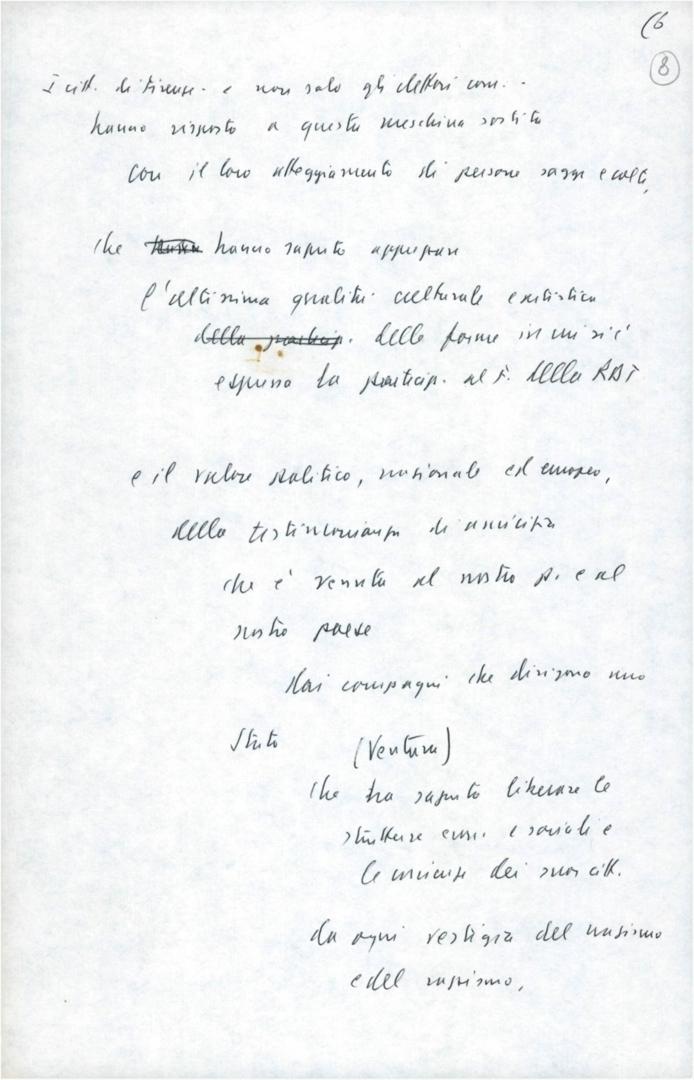 (6
8
I citt. di Firenze - e non solo gli elettori com. -
hanno risposto a questa meschina sortita
con il loro atteggiamento di persone sagge e colte,
che hanno saputo apprezzare
l'altissima qualità culturale e artistica
della partecip. delle forme in cui si è
espressa la partecip. al F. della RDT
e il valore politico, nazionale ed europeo,
della testimonianza di amicizia
che è venuta al nostro p. e al
nostro paese
dai compagni che dirigono uno
Stato (Ventura)
che ha saputo liberare le
strutture econ. e sociali e
le coscienze dei suoi citt.
da ogni vestigia del nazismo
e del razzismo,